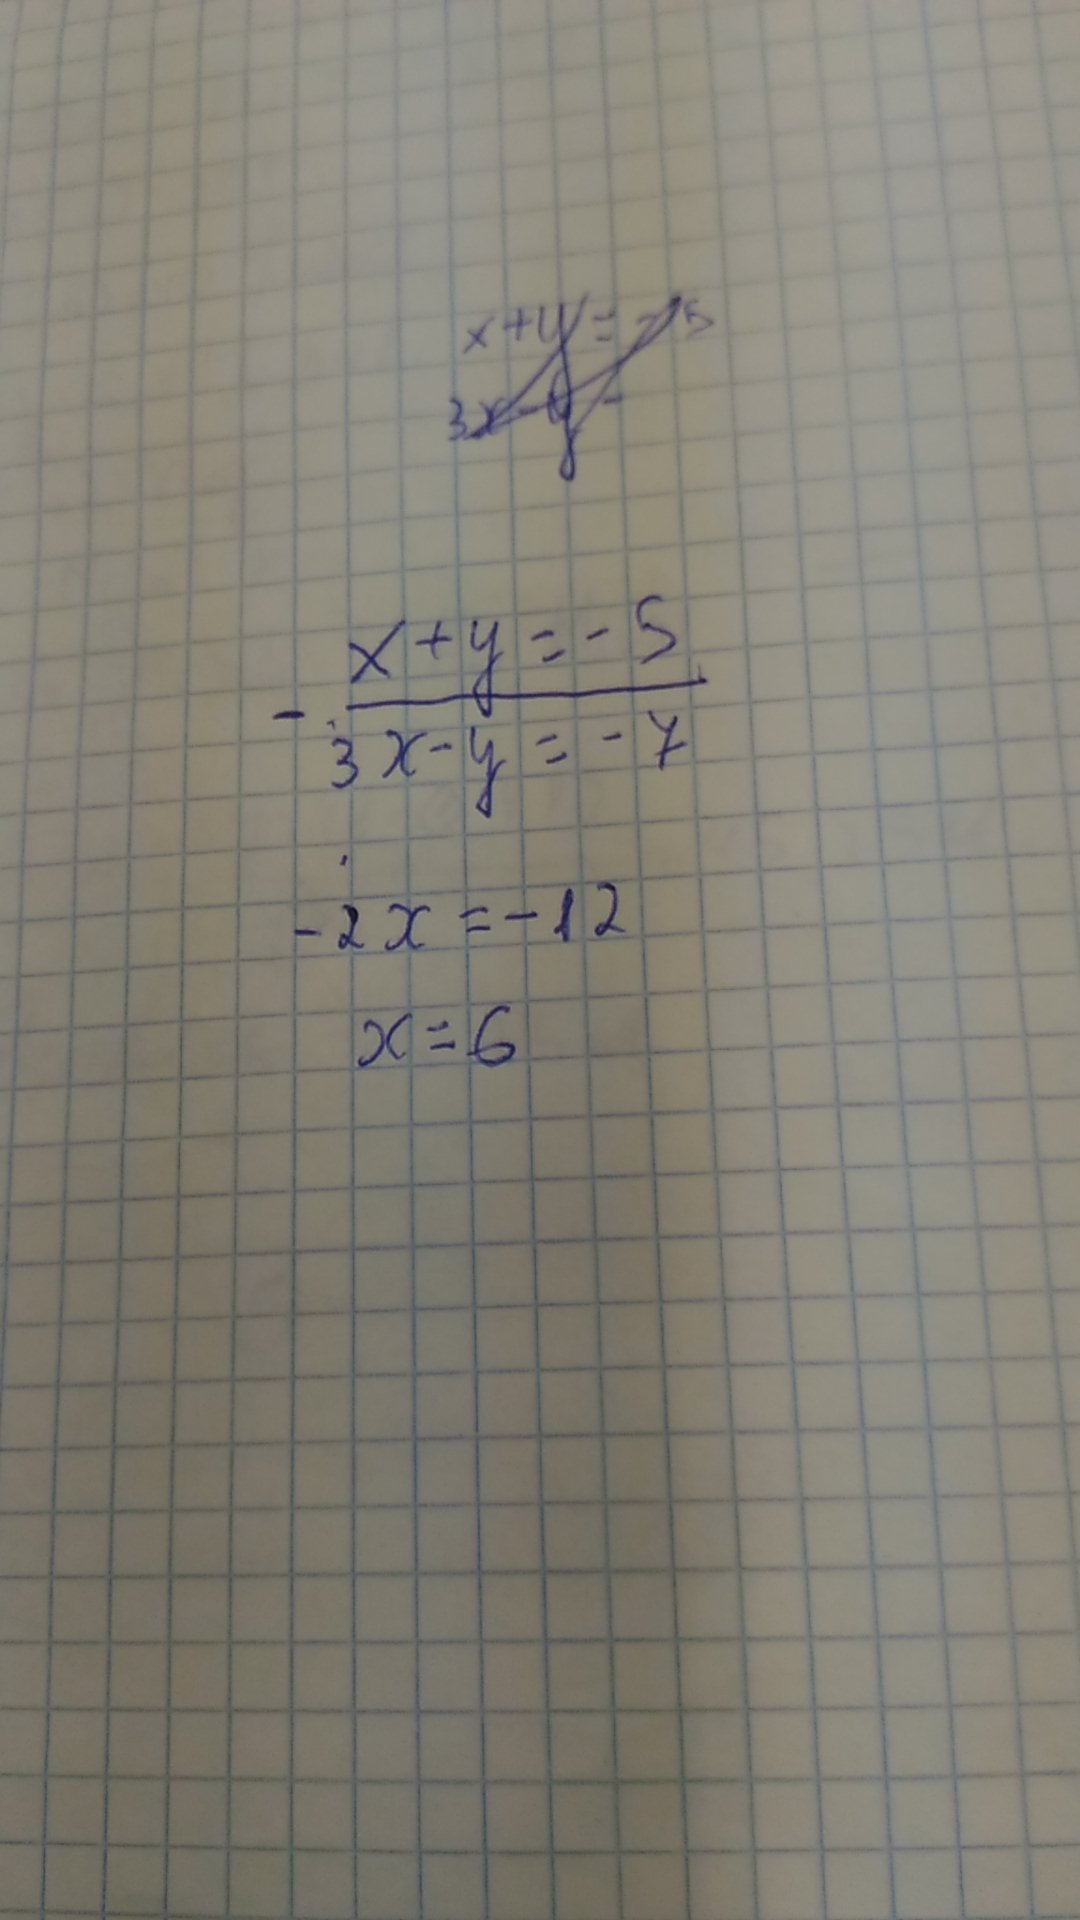 x+y=-5
3x-y-
x+y=-5
-
3x-y=-7
-2x=-12
x=6